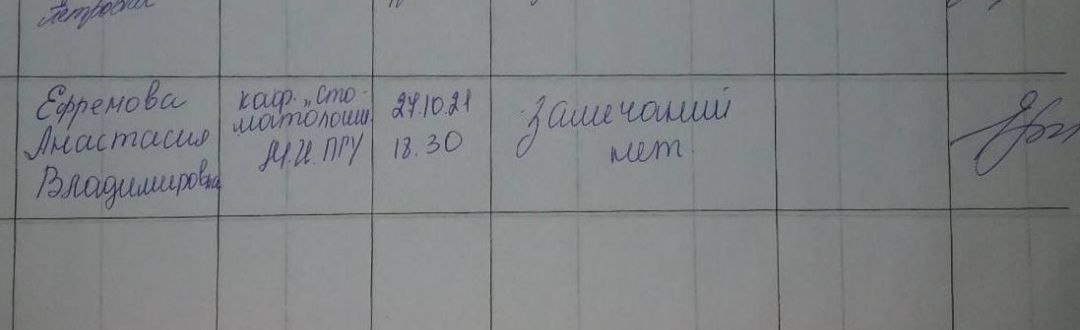 Петровна
Ефремова
Анастасия
Владимировна
каф. „Сто-
матологии
М.И. ПГУ
27.10.21
18.30
Замечаний
нет